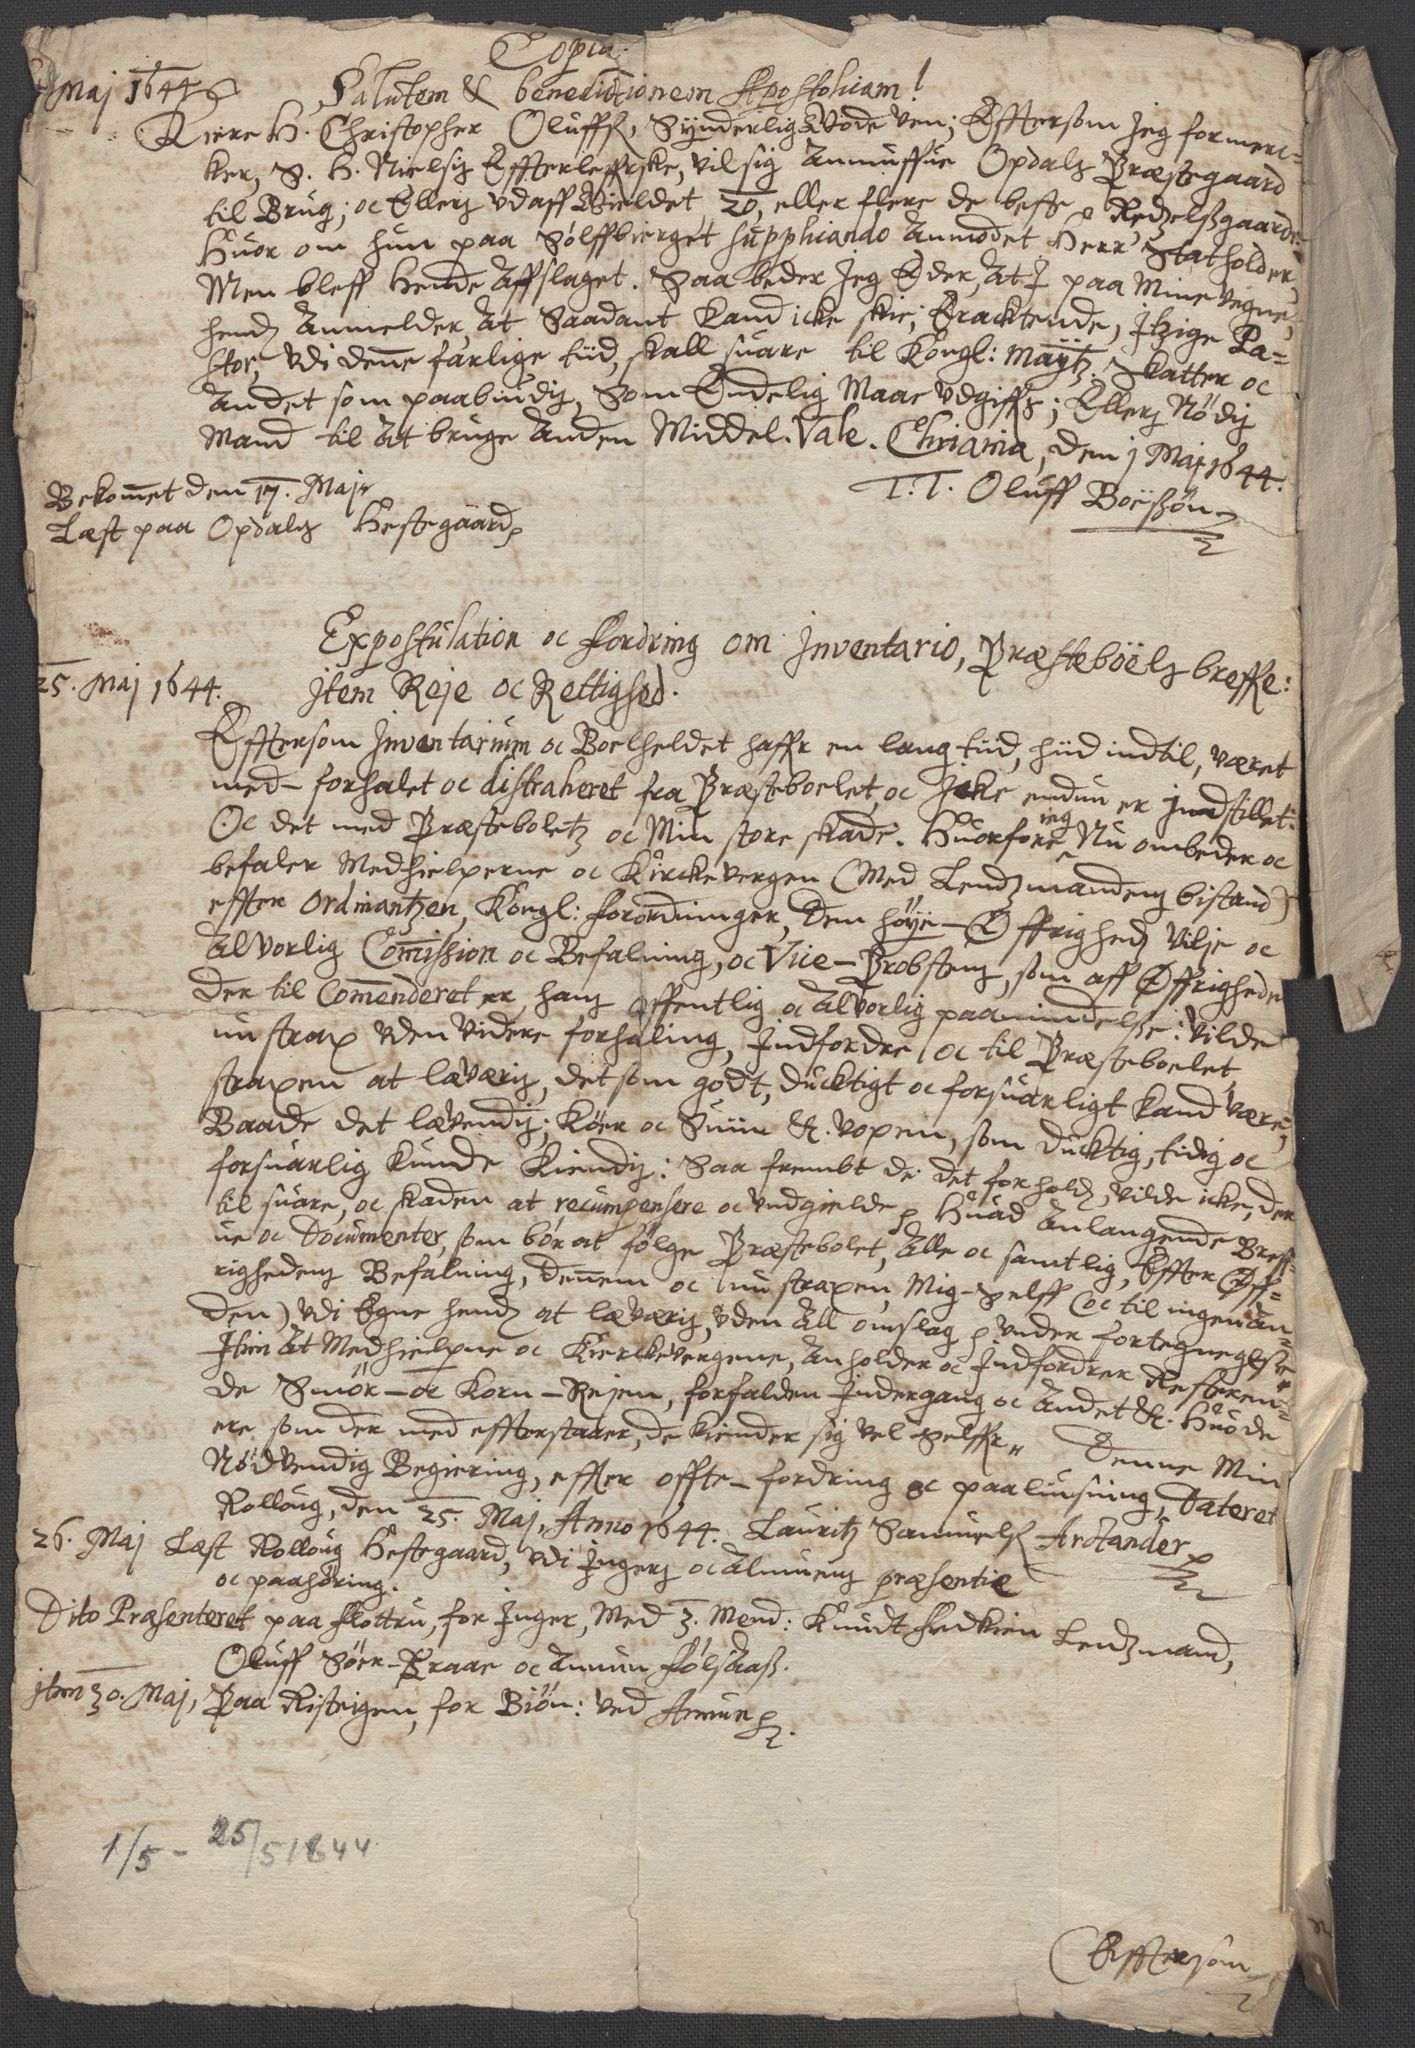 Copia.
1 Maj 1644
Salutem & benedictionem Apostolicam!
Kiere H. Christopher Oluffs, Synderlig Gode Ven; Efftersom Jeg formerc=
ker, S. H. Nielsis Effterleffrske, vil sig Anmuffue Opdals Præstegaard
til Brug; oc Ellers vdaff Gieldet, 20, eller flere de beste Redzelsgaarde
Huor om hun paa Sølffbierget supplicando Anmodet Herr Statholder,
Men bleff hende Affslaget. Saa beder Jeg Eder, At I paa Mine vegne,
hende Anmelder, At Saadant kand icke skie; Eracktende, Itzige Pa=
stor, vdi denne farlige tiid, skall suare til Kongl: Maytz. Skatter oc
Andet som paabindis, Som Endelig Maae vdgiffs; Ellers Nödis
Mand til At bruge Anden Middel. Vale. Chriania, den 1 Maj 1644.
T. T. Oluff Boëssön
Bekommet den 17. Maj
Læst paa Opdals Prestegaard
Expostulation oc fordring om Inventario, Præsteböels breffe:
25. Maj 1644.
Item Reje oc Rettighed.
Efftersom Inventarium oc Boelheldet haffr en lang tiid, hiid indtil, været
med- forhalet oc distraheret fra Præsteboelet, oc Icke endnu er Jndstillet:
Oc det med Præsteboletz oc Min store skade. Huorfore ieg Nu ombeder oc
befaler Medhielperne oc Kirckevergen (Med Lendzmandens bistand)
effter Ordinantzen, Kongl: forordninger, Den höye- Øffrigheds Vilje oc
Alvorlig Commission oc Befalning, oc Vice-Probstens, som aff Øffrigheden
der til Commenderet er, hans offentlig oc Alvorlig paamindelse: Vilde
nu strax vden videre forhaling, Indfordre oc til Præsteboelet
straxen at læveris, det som godt, ducktigt oc forsuarligt kand være,
Baade det lævendis; Köer oc Suiin &. vopen, som ducktig, tidig oc
forsuarlig kunde kiendis: Saa frembt de det forholds, vilde icke, der
til suare, oc skaden at recumpensere oc vndgielde. Huad Anlangende Breff=
ue oc Documenter, som bör at fölge Præstebolet, Alle oc samtlig, Effter Øff=
righedens Befalning, dennem oc nu straxen, Mig-selff (oc til ingen An=
den) vdi Egne hende at læveris, vden All omslag vnder fortegnegelse
Item At Medhielperne oc Kierckevergene, Anholder oc Indfordrer Resteren=
de Smör- oc Korn-Rejen, forfalden Indergang oc Andet &. Huo de
ere, som der med effterstaaer, de kiender sig vel selffr. Denne Min
Nödvendig Begiering, effter offte-fordring oc paaliusning, Dateret
Rolloug, den 25. Maj, Anno 1644. Lauritz Samuels Arctander
26. Maj Læst Rolloug Prestegaard, vdi Ingers oc Almuens præsentie
oc paahöring.
Dito Præsenteret paa Flottru, for Inger, Med 3. Mend: Knudt Lendzmand,
Oluff Sören-Braae oc Amun Følsaas.
Item 30. Maj, Paa Risteigen, for Biön: ved Amun
1/5 - 25/5 1644
Efftersom